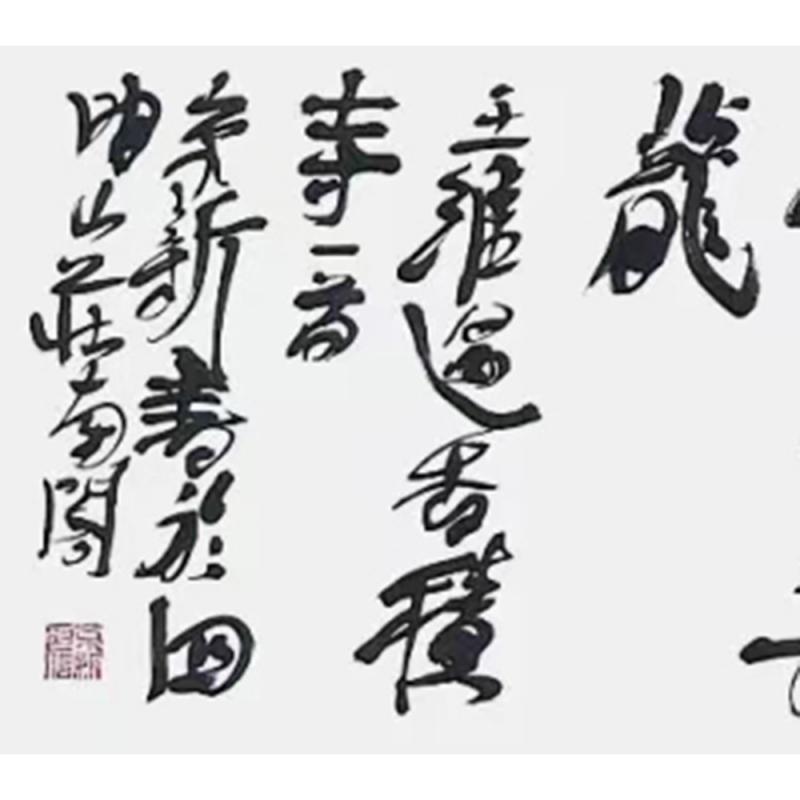 龍
王維過香積
寺一首
新書於四
明山莊南閣